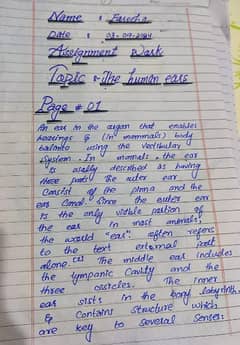 Name : Fareeha
Date : 03-09-2024
Assignment Work
Topic :- The human ears
Page # 01
An ear is the organ that enables
hearings & (in mammals) body
balance using the vestibular
system. In mamals, the ear
is usally described as having
three parts the outer ear
Consist of the pinna and the
ear Canal. Since the outer ear
is the only visible portion of
the ear in most animals,
the world "ear" often refers
to the text external part
alone. The middle ear includes
the tympanic Cavity and the
three ossicles. The inner
ear sists in the bony labyrinth,
& Contains structure which
are key to several senses: